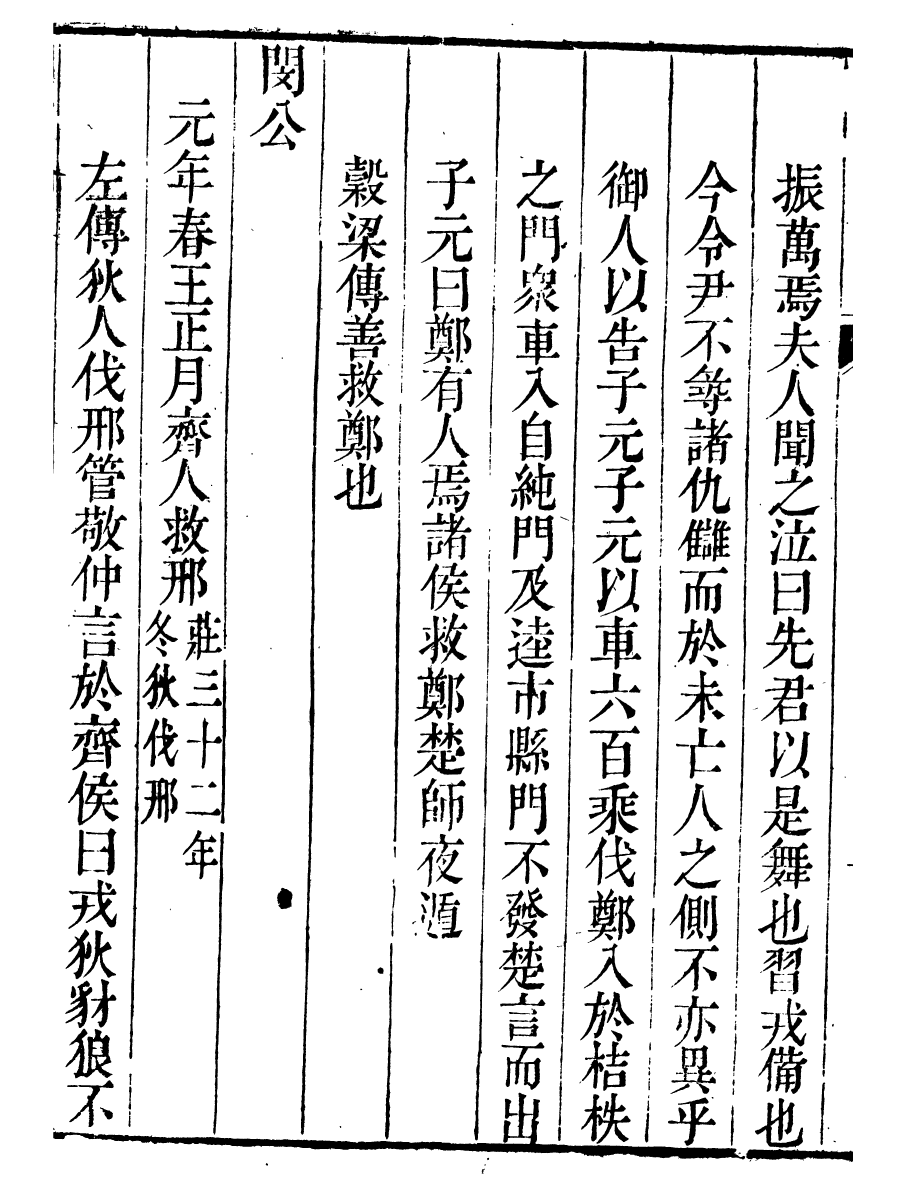 振萬焉夫人聞之泣曰先君以是舞也習戎備也
今令尹不䓁諸仇讎而於未亡人之側不亦異乎
御人以告子元子元以車六百乘伐鄭入於桔柣
之門衆車入自純門及逵市縣門不發楚言而出
子元曰鄭有人焉諸侯救鄭楚師夜遁
穀梁傳善救鄭也
閔公
元年春王正月齊人救邢莊三十二年冬狄伐邢
左傳狄人伐邢管敬仲言於齊侯曰戎狄豺狼不